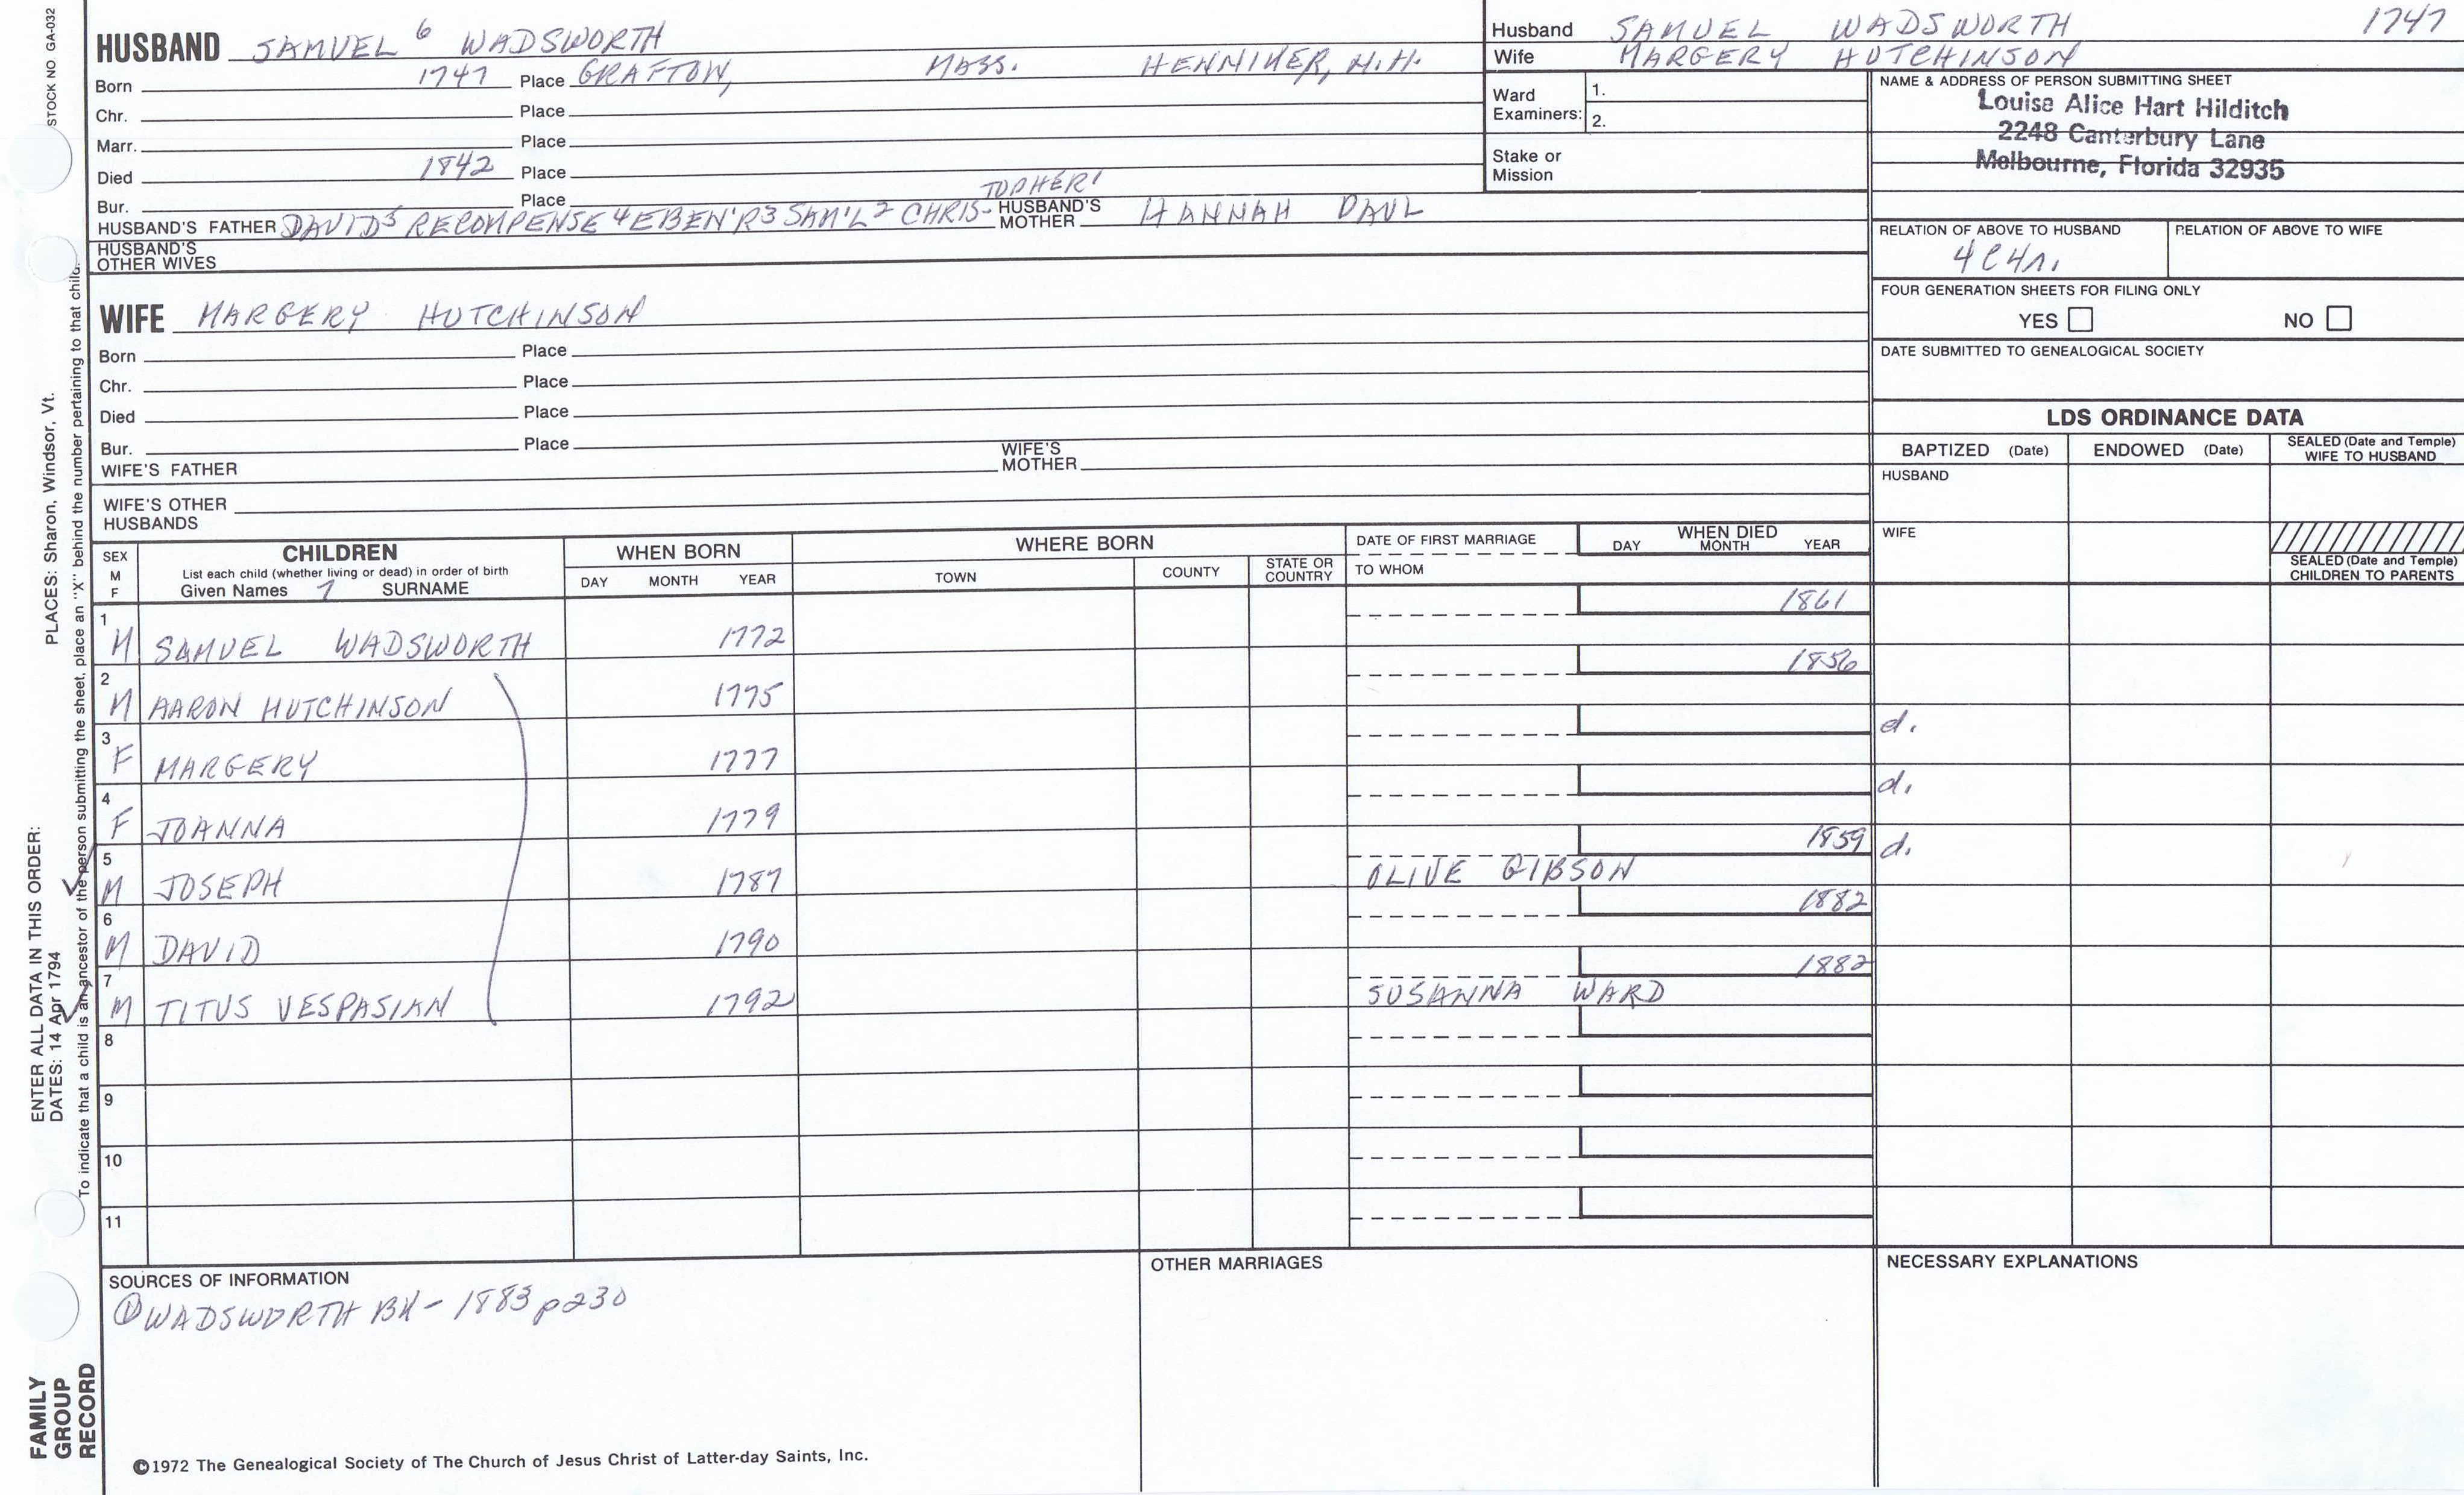 STOCK NO GA-032
HUSBAND SAMUEL 6 WADSWORTH
Born 1747 Place GRAFTON, MASS. HENNIKER, N.H.
Chr. Place
Marr. Place
Died 1842 Place
Bur. Place
HUSBAND'S FATHER DAVID5 RECOMPENSE 4 EBEN'R3 SAM'L 2 CHRIS- TOPHER1 HUSBAND'S MOTHER HANNAH PAUL
HUSBAND'S OTHER WIVES
Husband SAMUEL WADSWORTH 1747
Wife MARGERY HUTCHINSON
Ward Examiners: 1.
2.
Stake or Mission
NAME & ADDRESS OF PERSON SUBMITTING SHEET
Louise Alice Hart Hilditch
2248 Canterbury Lane
Melbourne, Florida 32935
RELATION OF ABOVE TO HUSBAND RELATION OF ABOVE TO WIFE
4C4r.
FOUR GENERATION SHEETS FOR FILING ONLY
YES NO
DATE SUBMITTED TO GENEALOGICAL SOCIETY
WIFE MARGERY HUTCHINSON
Born Place
Chr. Place
Died Place
Bur. Place
WIFE'S FATHER WIFE'S MOTHER
WIFE'S OTHER HUSBANDS
LDS ORDINANCE DATA
BAPTIZED (Date) ENDOWED (Date) SEALED (Date and Temple) WIFE TO HUSBAND
HUSBAND
WIFE
SEALED (Date and Temple) CHILDREN TO PARENTS
SEX M F CHILDREN WHEN BORN WHERE BORN DATE OF FIRST MARRIAGE WHEN DIED
List each child (whether living or dead) in order of birth
Given Names 7 SURNAME DAY MONTH YEAR TOWN COUNTY STATE OR COUNTRY TO WHOM DAY MONTH YEAR
1 M SAMUEL WADSWORTH 1772 1861
2 M AARON HUTCHINSON 1775 1856
3 F MARGERY 1777 d.
4 F JOANNA 1779 d.
5 M JOSEPH 1787 OLIVE GIBSON 1859 d.
6 M DAVID 1790 1882
7 M TITUS VESPASIAN 1792 SUSANNA WARD 1882
8
9
10
11
SOURCES OF INFORMATION
① WADSWORTH BK - 1883 p230
OTHER MARRIAGES
NECESSARY EXPLANATIONS
©1972 The Genealogical Society of The Church of Jesus Christ of Latter-day Saints, Inc.
FAMILY GROUP RECORD
ENTER ALL DATA IN THIS ORDER:
DATES: 14 Apr 1794
PLACES: Sharon, Windsor, Vt.
To indicate that a child is an ancestor of the person submitting the sheet, place an "X" behind the number pertaining to that child.